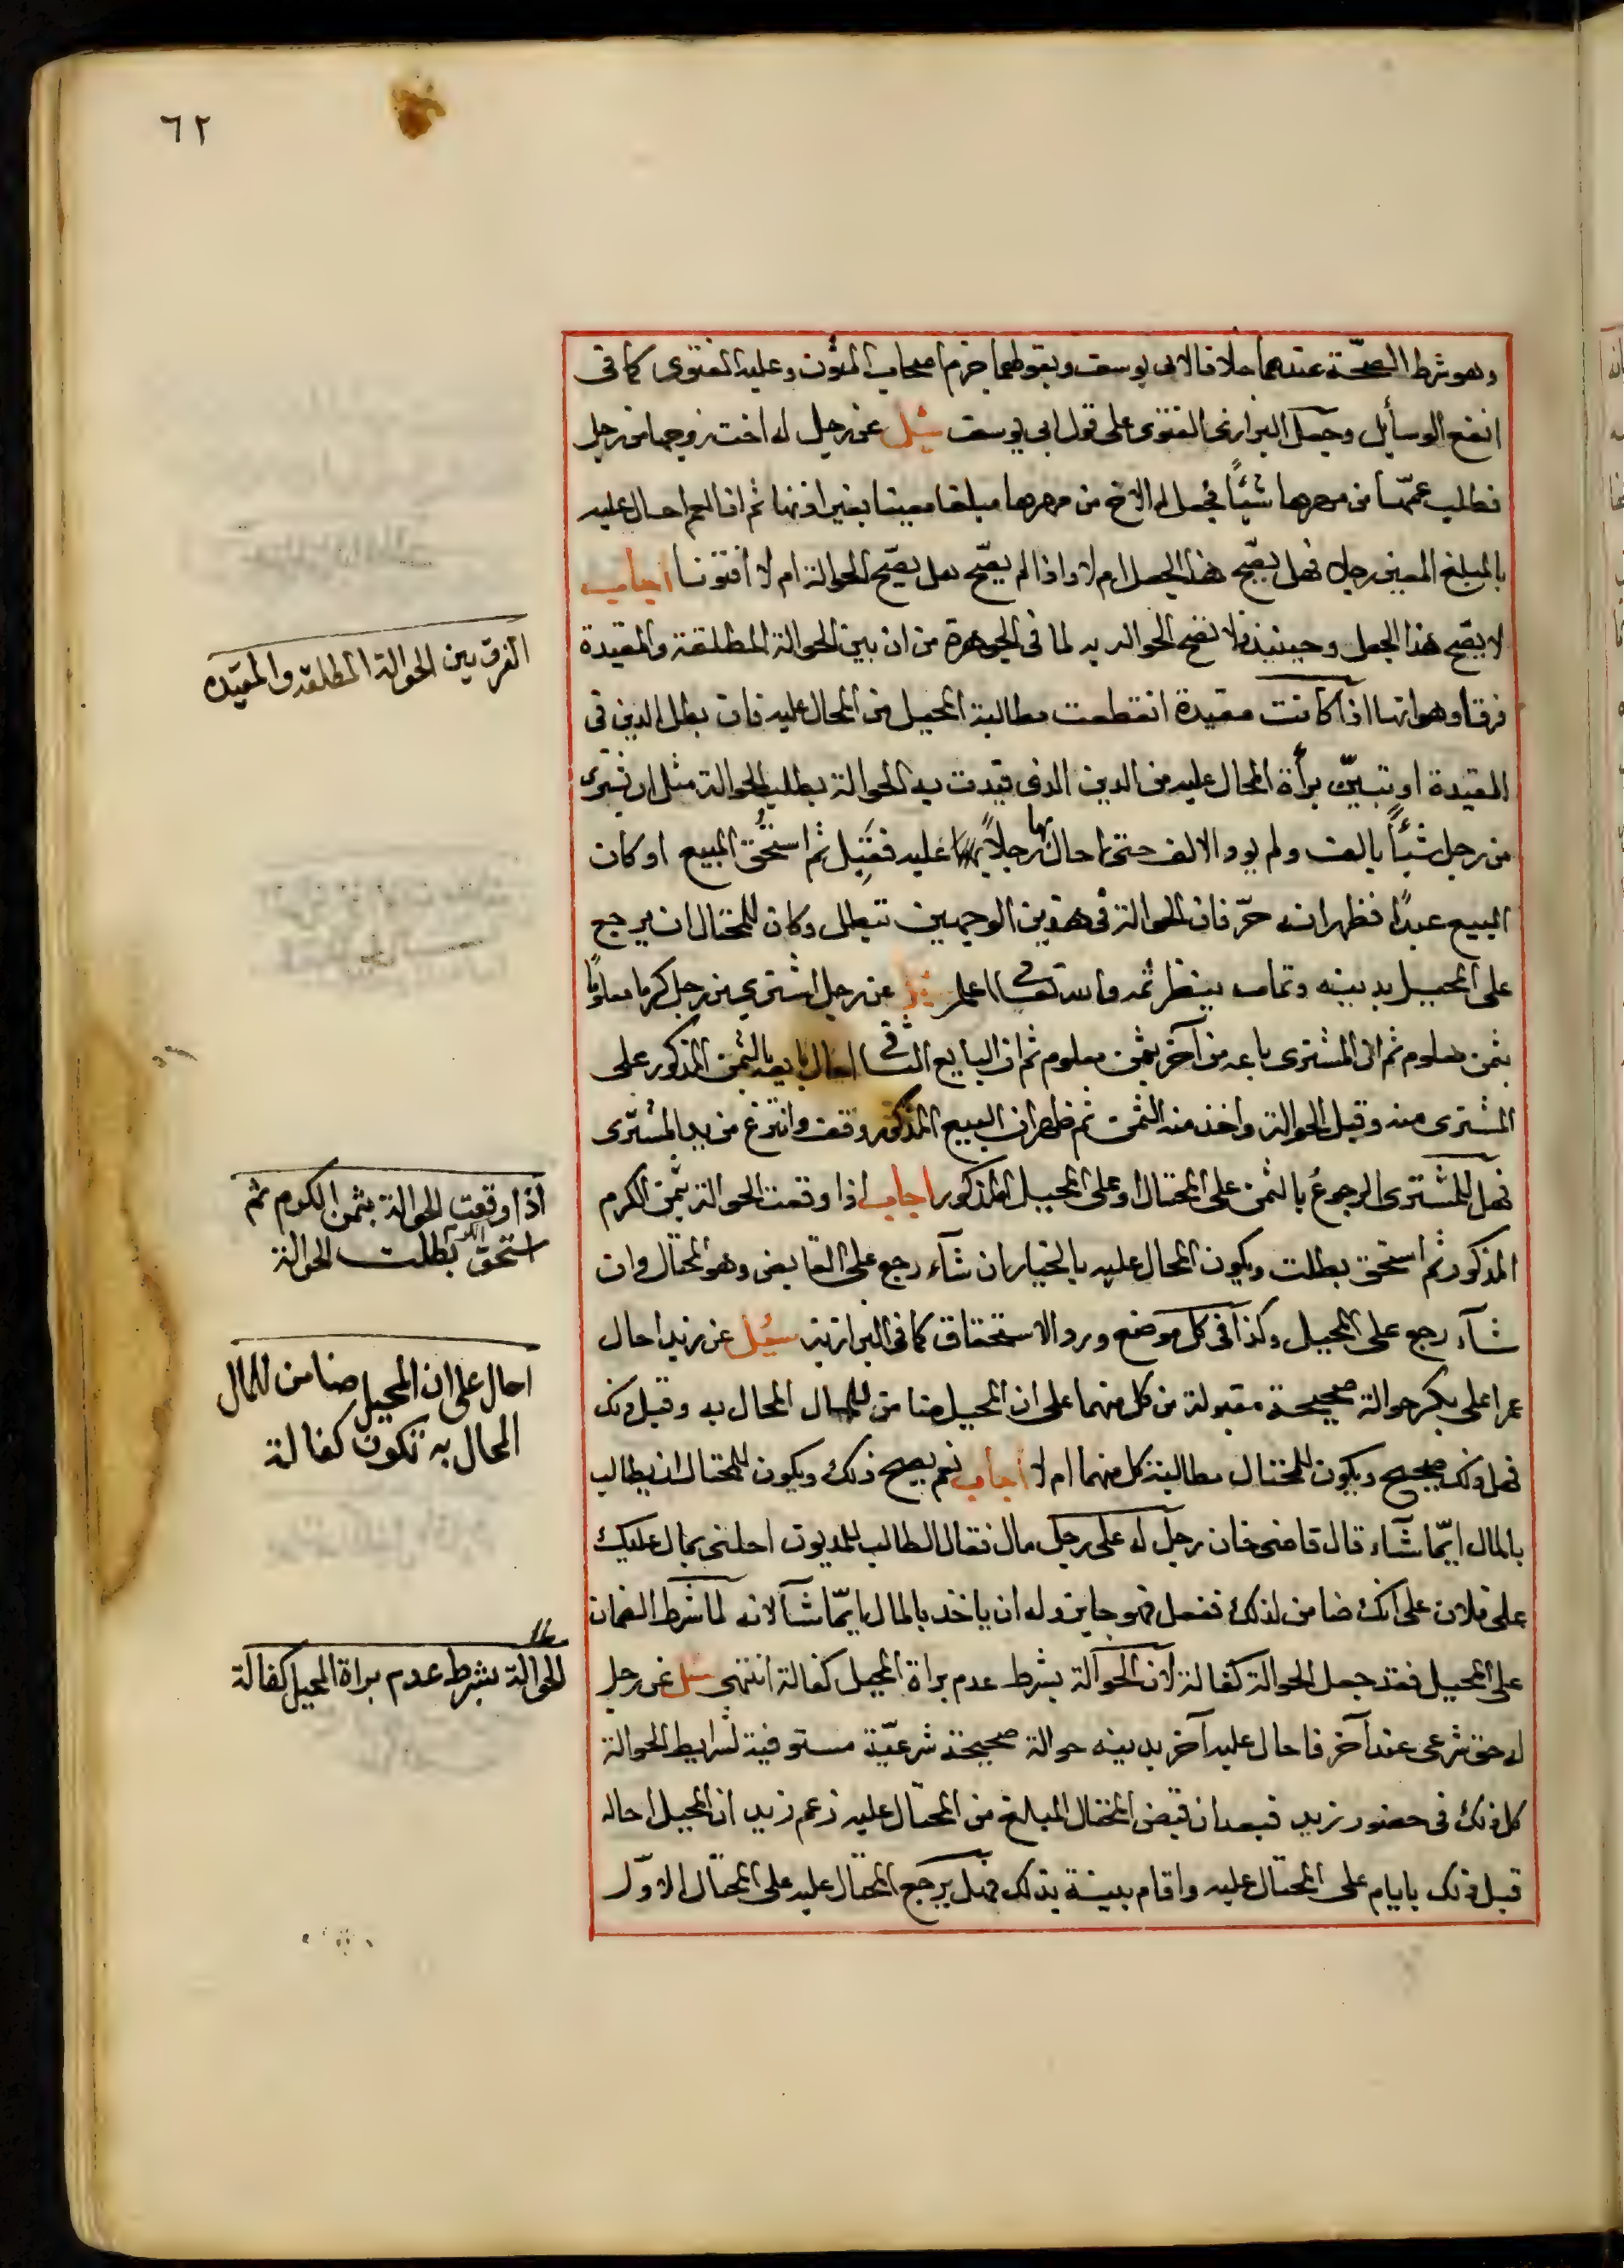 ٦٢
وهو شرط الصحّة عندهما خلافا لابى يوسف وبقولهما جزم اصحاب المتون وعليه الفتوى كما فى
انفع الوسأيل وجعل البزازى الفتوى على قول ابى يوسف سئل عن رجل له اخت زوجها من رجل
فطلب عمّها من مهرها شيئًا فجعل له الاخ من مهرها مبلغا معينا بغير اذنها ثم ان العم احال عليه
بالمبلغ المعين رجلا فهل يصّح هذا الجعل ام لا واذا لم يصّح هل يصّح الحوالة ام لا افتونا اجاب
لا يصّح هذا الجعل وحينئذ فلا تصح الحواله به لما فى الجوهرة من ان بين الحوالة المطلقة والمقيدة
فرقا وهو انها اذا كانت مقيدة انقطعت مطالبة المحيل من المحال عليه فان بطل الدين فى
المقيدة او تبيّن برأة المحال عليه من الدين الذى قيدت به الحوالة بطلت الحوالة مثل ان يشترى
من رجل شيئًا بالف ولم يود الالف حتى احال بها رجلاً عليه فقَبِل ثم استُحُق المبيع او كان
المبيع عبدًا فظهر انه حرّ فان الحوالة فى هذين الوجهين تبطل وكان للمحتال ان يرجع
على المحيل بدينه وتمامه ينظر ثمه والله تعالى اعلم سئل عن رجل اشترى من رجل كرما معلومًا
بثمن معلوم ثم ان المشترى باعه من آخر بثمن معلوم ثم ان البايع الثانى احال بايعه بالثمن المذكور على
المشترى منه وقبل الحوالة واخذ منه الثمن ثم ظهر ان المبيع المذكور وقف وانتزع من يد المشترى
فهل للمشترى الرجوعُ بالثمن على المحتال او على المحيل المذكور اجاب اذا وقعت الحوالة بثمن الكرم
المذكور ثم استحق بطلت ويكون المحال عليه بالخيار ان شآء رجع على القابض وهو المحتال وان
شآء رجع على المحيل وكذا فى كل موضع ورد الاستحقاق كما فى البزازية سئل عن زيد احال
عمرا على بكر حوالة صحيحة مقبولة من كل منهما على ان المحيل ضامن للمال المحال به وقبل ذلك
فهل ذلك صحيح ويكون للمحتال مطالبة كل منهما ام لا اجاب نعم يصح ذلك ويكون للمحتال ان يطالب
بالمال ايّما شآء قال قاضى خان رجل له على رجل مال فقال الطالب للمديون احلنى بمال عليك
على فلان على انك ضامن لذلك ففعل فهو جايز وله ان ياخذ بالمال ايّما شآ لانه لما شرط الضمان
على المحيل فقد جعل الحوالة كفالة لان الحوالة بشرط عدم براة المحيل كفالة انتهى سئل عن رجل
له حق شرعى عند آخر فاحال عليه آخر بدينه حوالة صحيحة شرعيّة مستوفية لشرايط الحوالة
كل ذلك فى حضور زيد فبعد ان قبض المحتال المبلغ من المحتال عليه زعم زيد ان المحيل احاله
قبل ذلك بايام على المحتال عليه واقام بينة بذلك فهل يرجع المحتال عليه على المحتال الاوّل
الفرق بين الحوالة المطلقه والمقيّده
اذا وقعت الحوالة بثمن الكرم ثم
استحق الكرم بطلت الحوالة
احال على ان المحيل ضامن للمال
المحال به تكون كفالة
الحوالة بشرط عدم براة المحيل كفالة